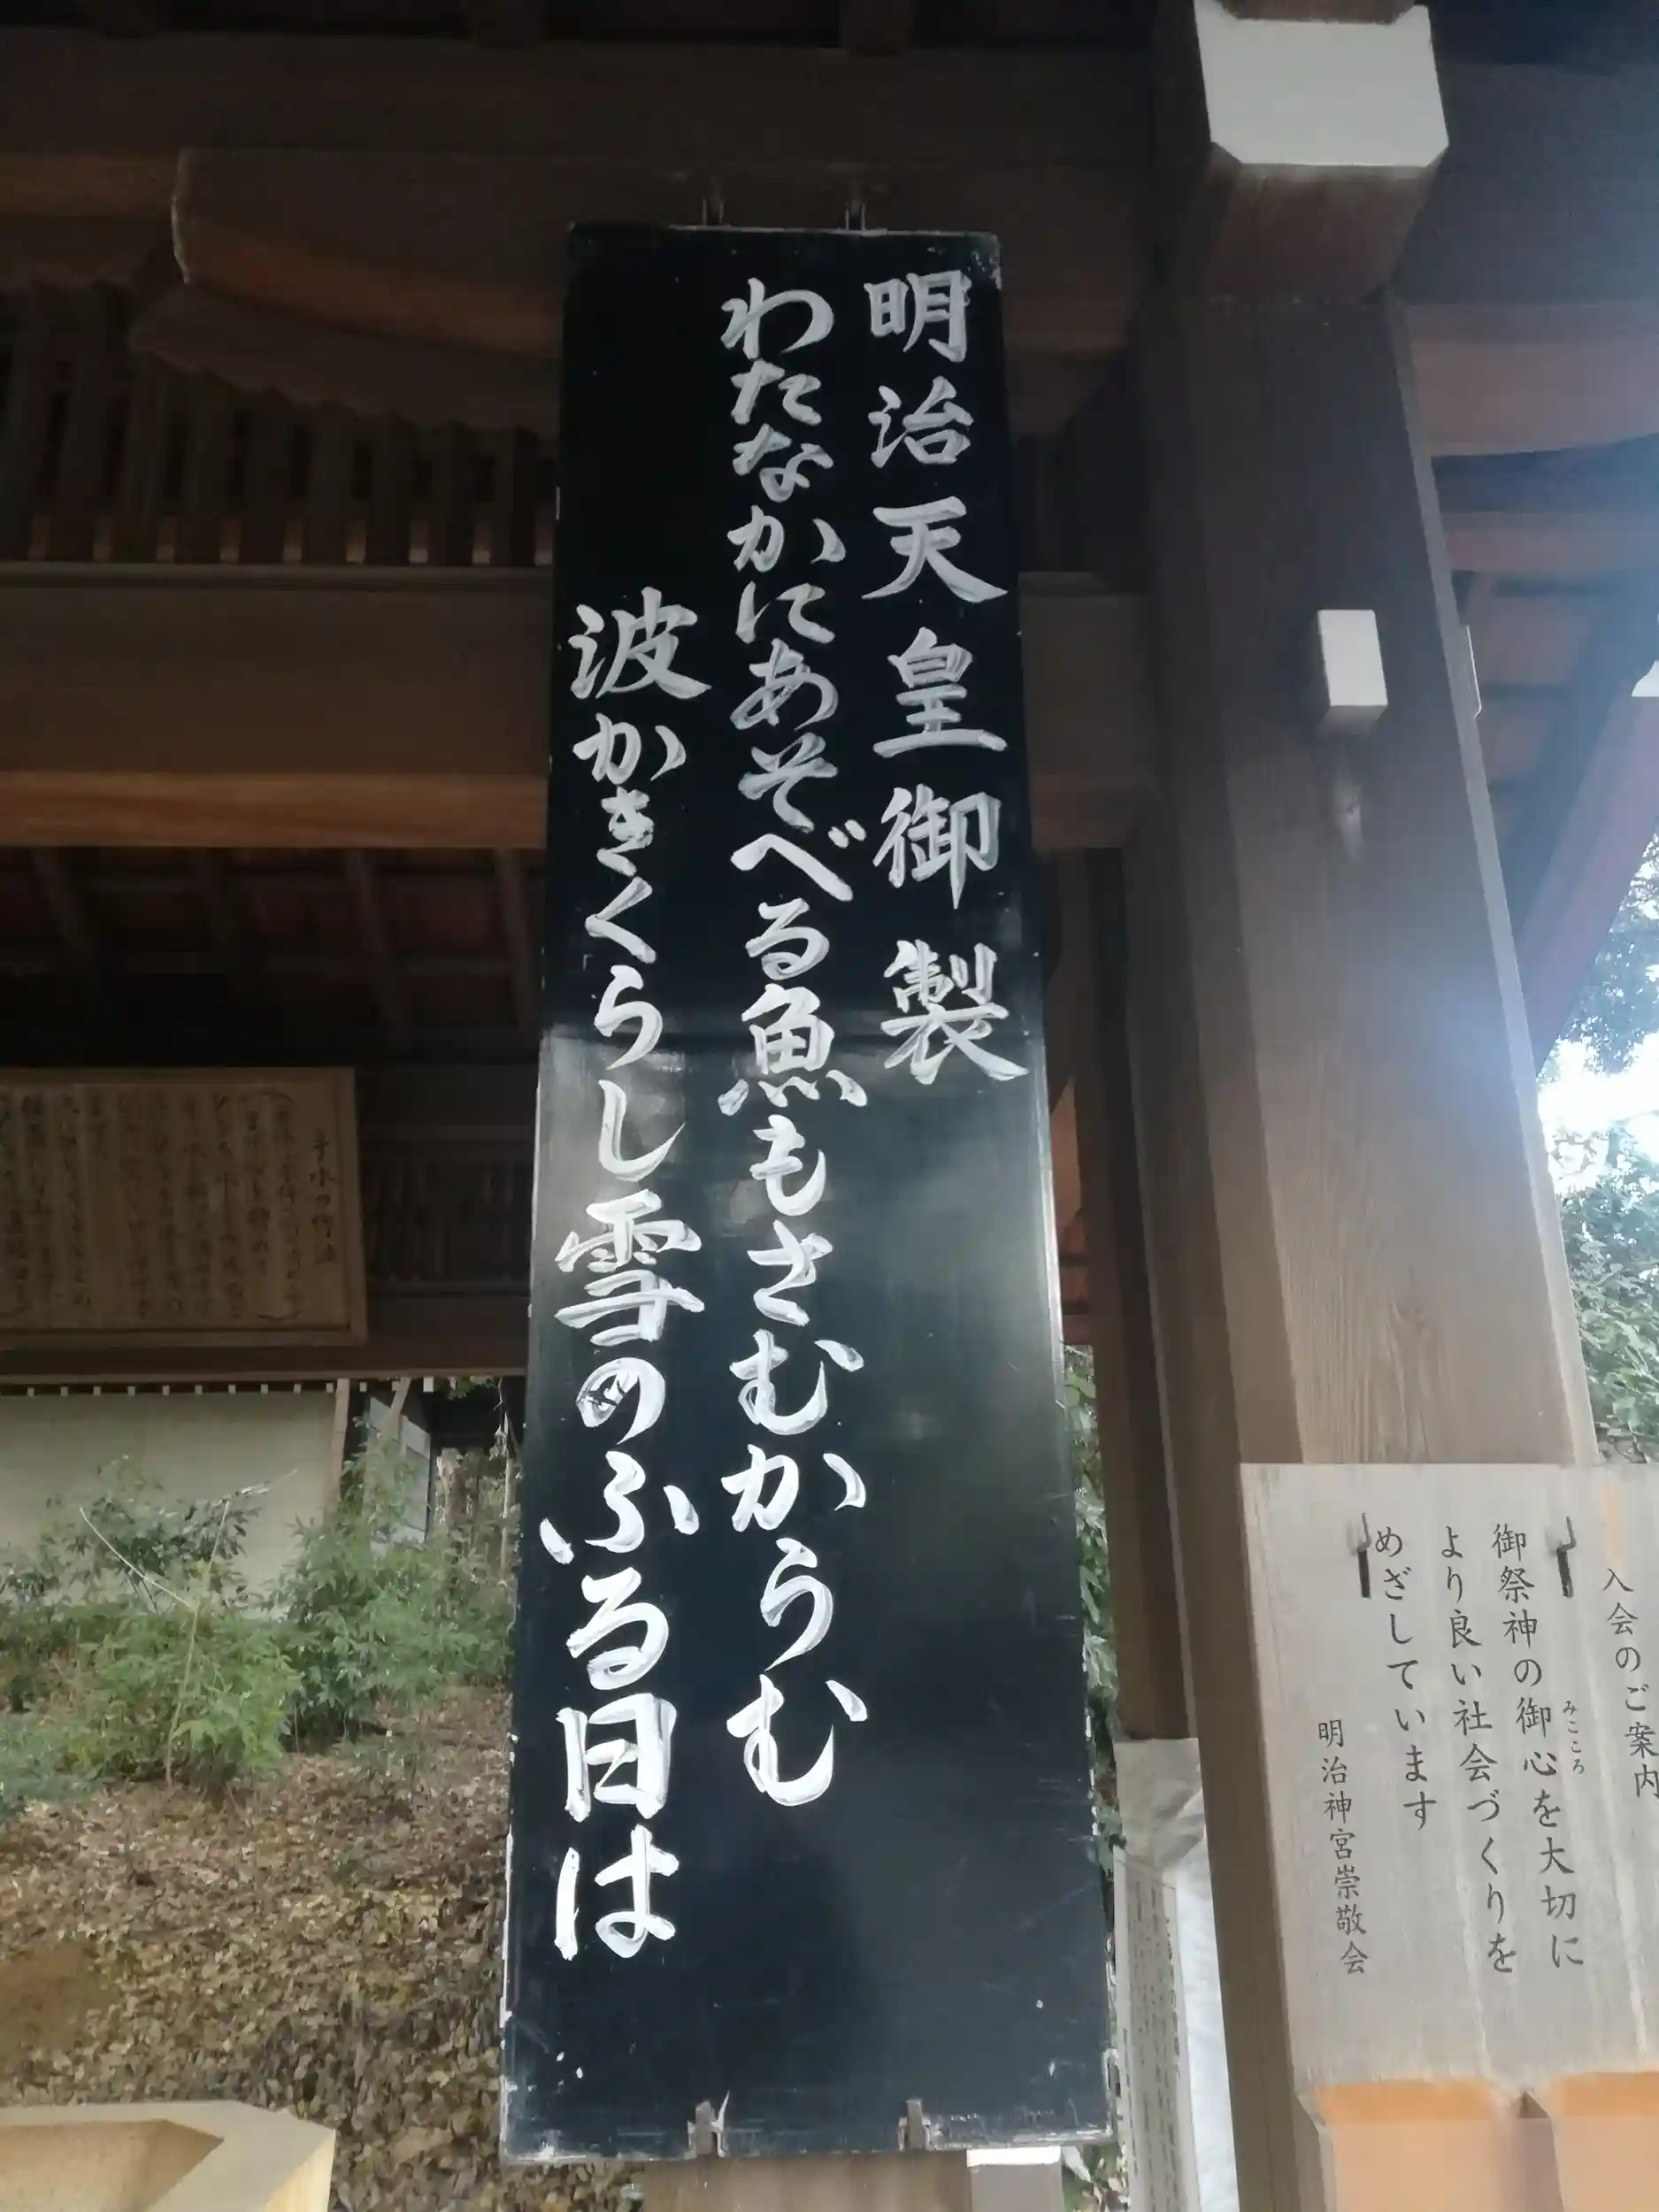 明治天皇御製
わたなかにあそべる魚もさむからむ
波かきくらし雪のふる日は
入会のご案内
御祭神の御心を大切に
みこころ
より良い社会づくりを
めざしています
明治神宮崇敬会
手水の作法